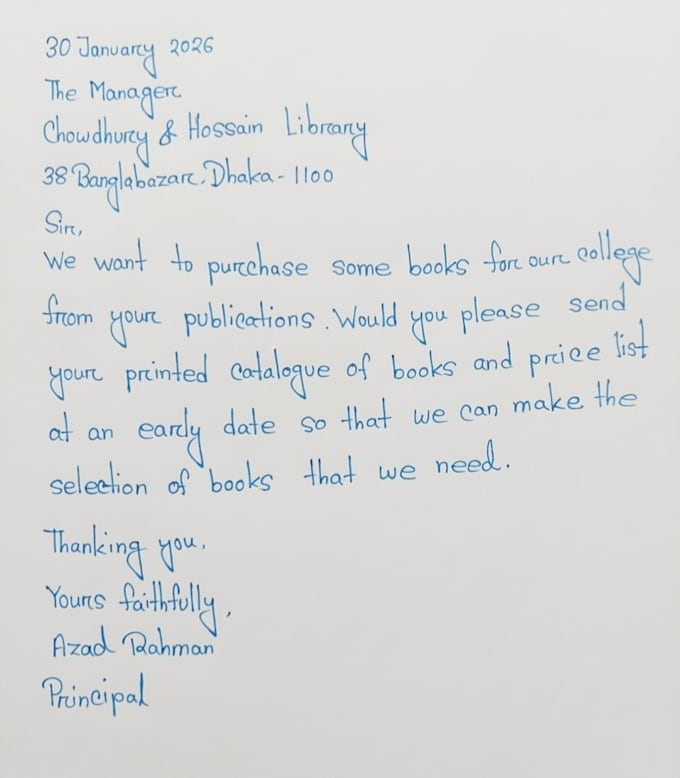 30 January 2026
The Manager
Chowdhury & Hossain Library
38 Banglabazar, Dhaka - 1100
Sir,
We want to purchase some books for our college
from your publications. Would you please send
your printed catalogue of books and price list
at an early date so that we can make the
selection of books that we need.
Thanking you,
Yours faithfully,
Azad Rahman
Principal